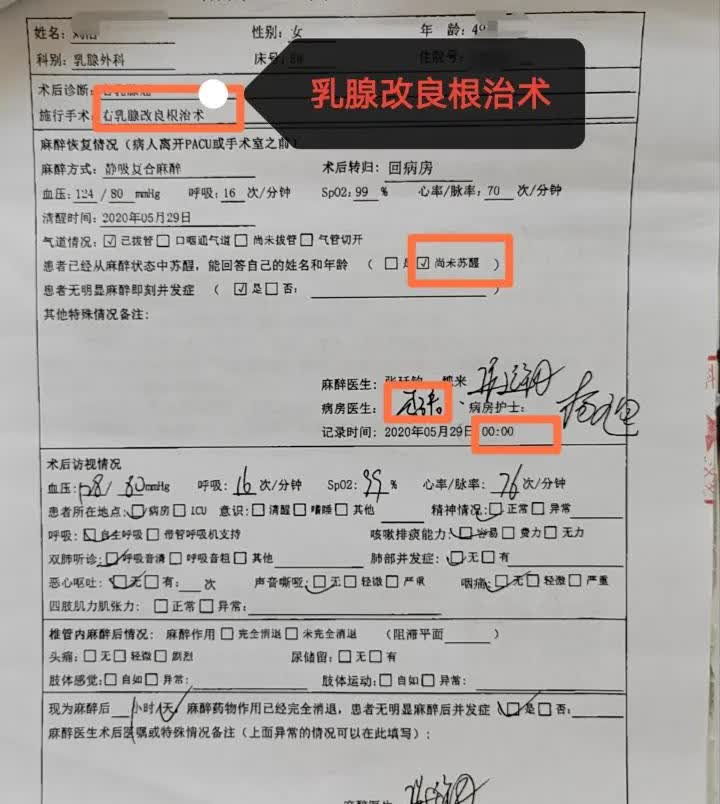 姓名：
性别：女
年 龄：4
科别：乳腺外科
床号：
住院号：
乳腺改良根治术
术后诊断：
施行手术：右乳腺改良根治术
麻醉恢复情况（病人离开PACU或手术室之前
麻醉方式：静吸复合麻醉 术后转归：回病房
血压：124 / 80 mmHg 呼吸：16 次/分钟 SpO2：99 % 心率/脉率：70 次/分钟
清醒时间：2020年05月29日
气道情况：☑已拔管□口咽通气道□尚未拔管□气管切开
患者已经从麻醉状态中苏醒，能回答自己的姓名和年龄 （ □是☑尚未苏醒 ）
患者无明显麻醉即刻并发症 （ ☑是□否： ）
其他特殊情况备注：
麻醉医生：
病房医生： 病房护士：
记录时间：2020年05月29日 00:00
术后访视情况
血压：128 / 80 mmHg 呼吸：16 次/分钟 SpO2：99 % 心率/脉率：76 次/分钟
患者所在地点：☑病房□ICU 意识：□清醒□嗜睡□其他 精神情况：☑正常□异常
呼吸：☑自主呼吸□带管呼吸机支持 咳嗽排痰能力：☑容易□费力□无力
双肺听诊：☑呼吸音清□呼吸音粗□其他 肺部并发症：☑无□有
恶心呕吐：☑无□有： 次 声音嘶哑：☑无□轻微□严重 咽痛：☑无□轻微□严重
四肢肌力肌张力： □正常□异常：
椎管内麻醉后情况： 麻醉作用□完全消退□未完全消退 （阻滞平面 ）
头痛：□无□轻微□剧烈 尿储留：□无□有
肢体感觉：□自如□异常： 肢体运动：□自如□异常：
现为麻醉后 小时/1天，麻醉药物作用已经完全消退，患者无明显麻醉后并发症 ☑是□否：
麻醉医生术后医嘱或特殊情况备注（上面异常的情况可以在此填写）：
麻醉医生